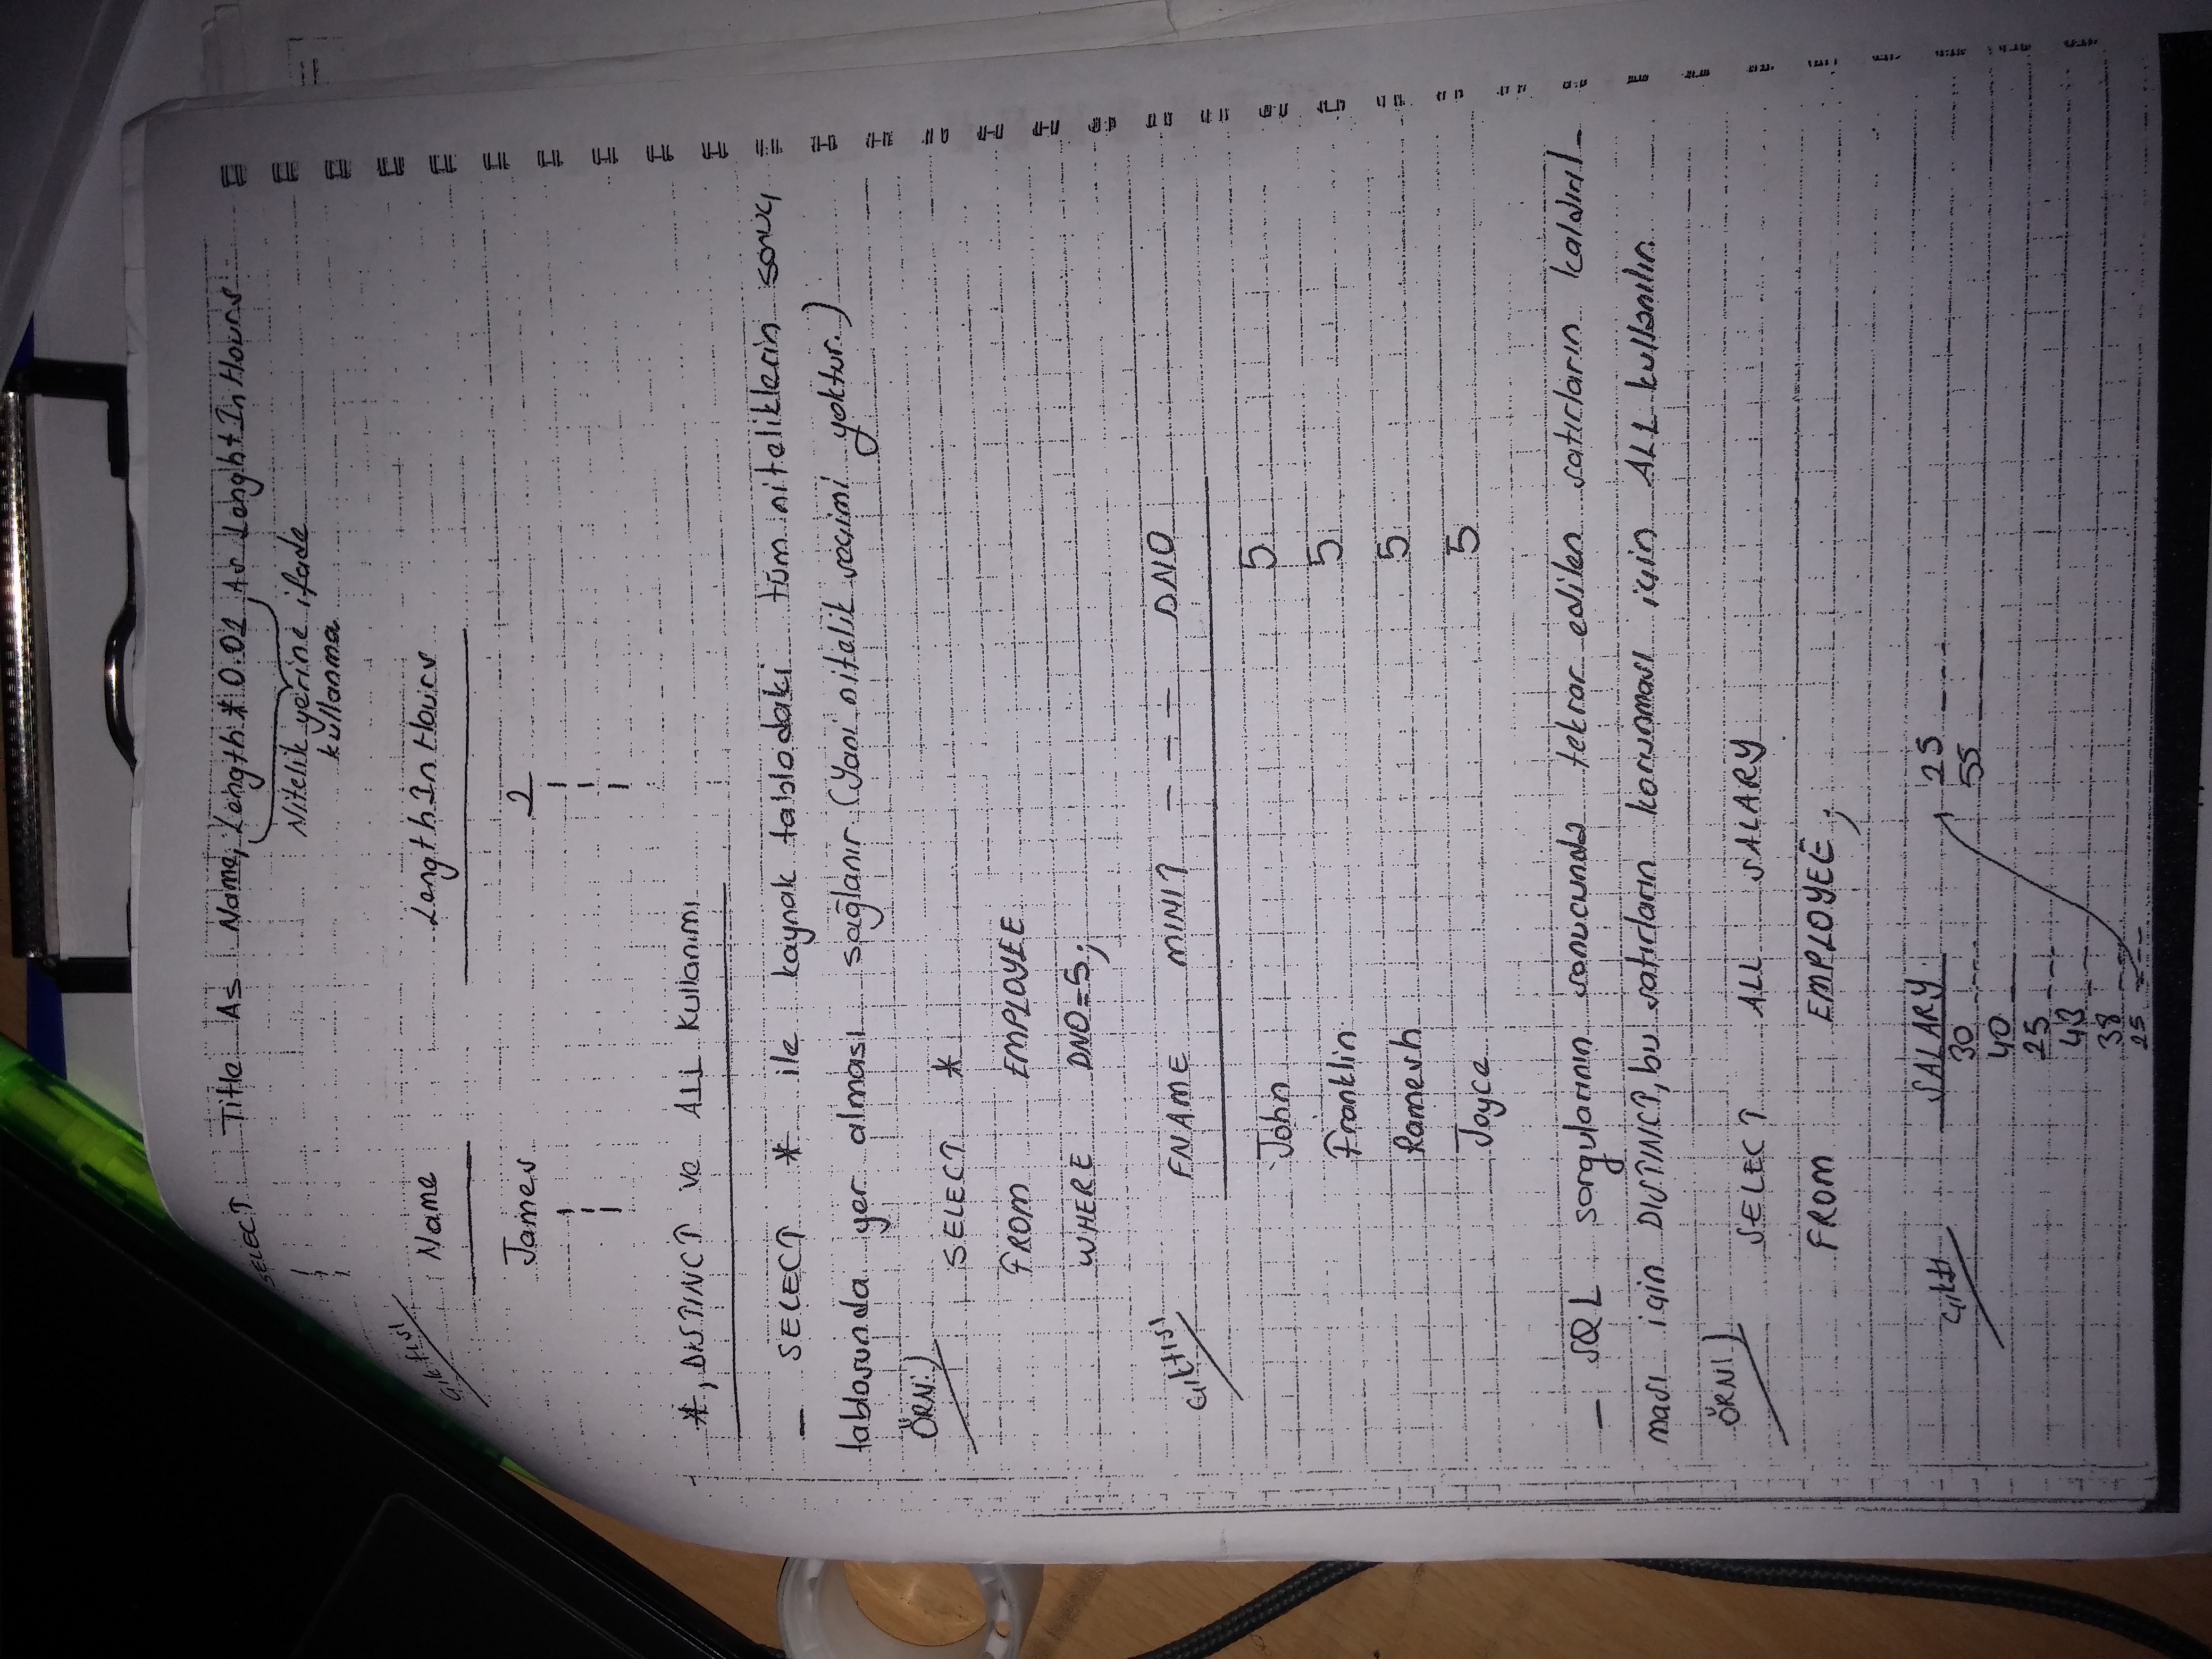 SELECT Title As Name, Length * 0.01 As LenghtInHours
Nitelik yerine ifade
kullanma
Çıktısı
Name LengthInHours
James 2
*, DISTINCT ve ALL kullanımı
— SELECT * ile kaynak tablodaki tüm niteliklerin sonuç
tablosunda yer alması sağlanır (Yani nitelik seçimi yoktur.)
ÖRN:) SELECT *
FROM EMPLOYEE
WHERE DNO=5;
Çıktısı
FNAME MINIT - - - - DNO
John 5
Franklin 5
Ramesh 5
Joyce 5
— SQL sorgularının sonucunda tekrar edilen satırların kaldırıl-
ması için DISTINCT, bu satırların korunması için ALL kullanılır.
ÖRN) SELECT ALL SALARY
FROM EMPLOYEE;
Çıktı SALARY
30 25
40 55
25
43
38
25